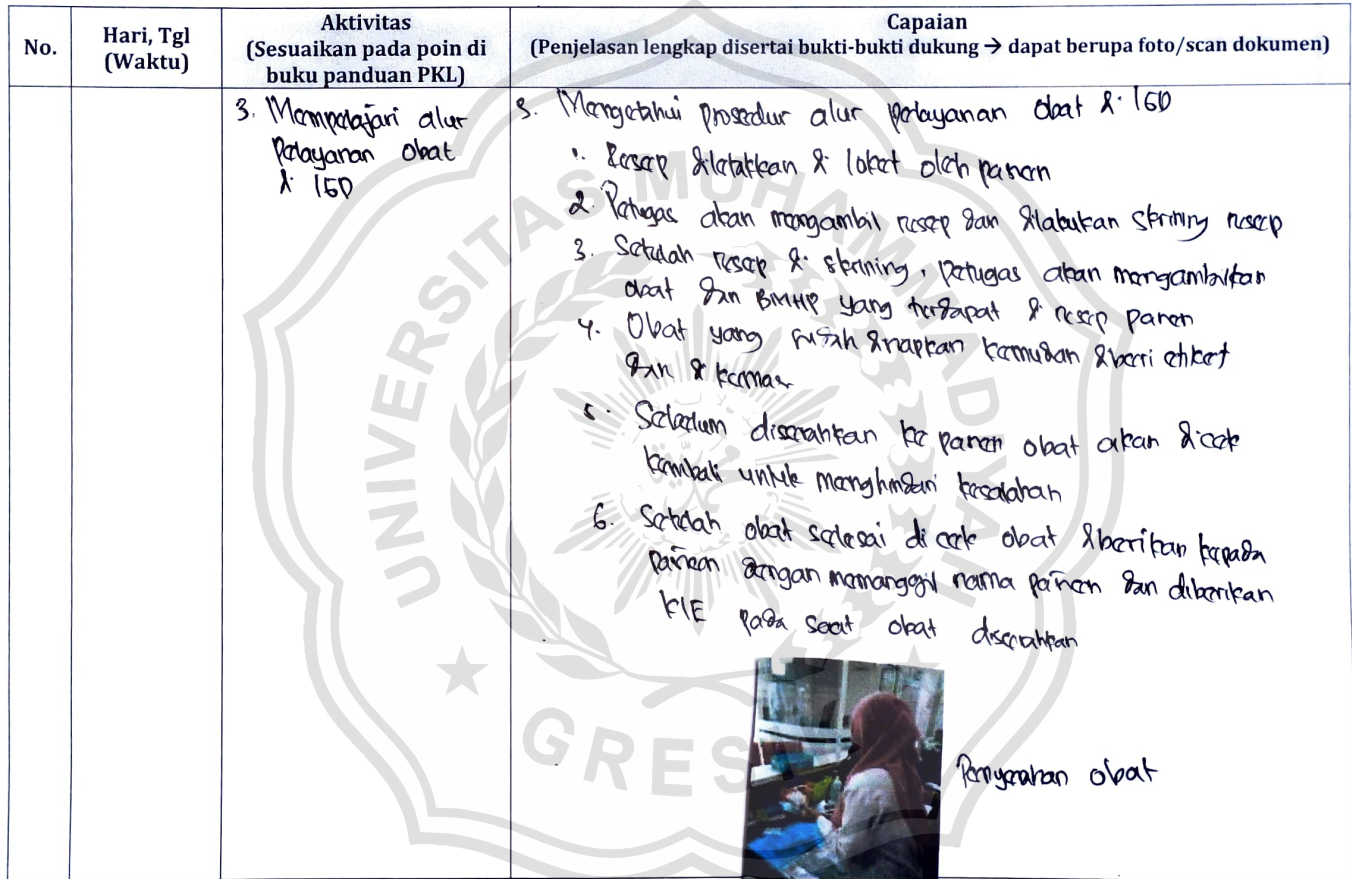 No.
Hari, Tgl
(Waktu)
Aktivitas
(Sesuaikan pada poin di
buku panduan PKL)
Capaian
(Penjelasan lengkap disertai bukti-bukti dukung → dapat berupa foto/scan dokumen)
3. Mempelajari alur
pelayanan obat
di IGD
3. Mengetahui prosedur alur pelayanan obat di IGD
1. Resep diletakkan di loket oleh pasien
2. Petugas akan mengambil resep dan dilakukan skrining resep
3. Setelah resep di skrining, petugas akan mengambilkan
obat dan BMHP yang terdapat di resep pasien
4. Obat yang sudah disiapkan kemudian diberi etiket
dan di kemas
5. Sebelum diserahkan ke pasien obat akan dicek
kembali untuk menghindari kesalahan
6. Setelah obat selesai di cek obat diberikan kepada
pasien dengan memanggil nama pasien dan diberikan
KIE pada saat obat diserahkan
Penyerahan obat
UNIVERSITAS MUHAMMADIYAH
GRESIK